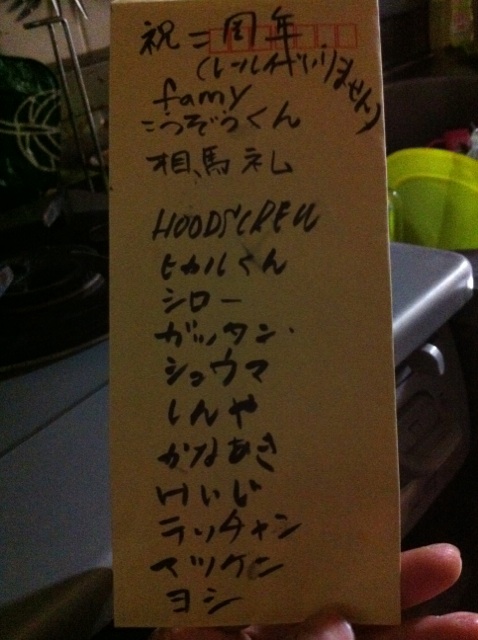 祝二周年
(ルールがいりません)
famy
こうぞうくん
相馬礼
HOODS'CREW
ヒカルくん
シロー
ガッタン
ショウマ
しんや
かなあき
けいじ
テッチャン
マツケン
ヨシ